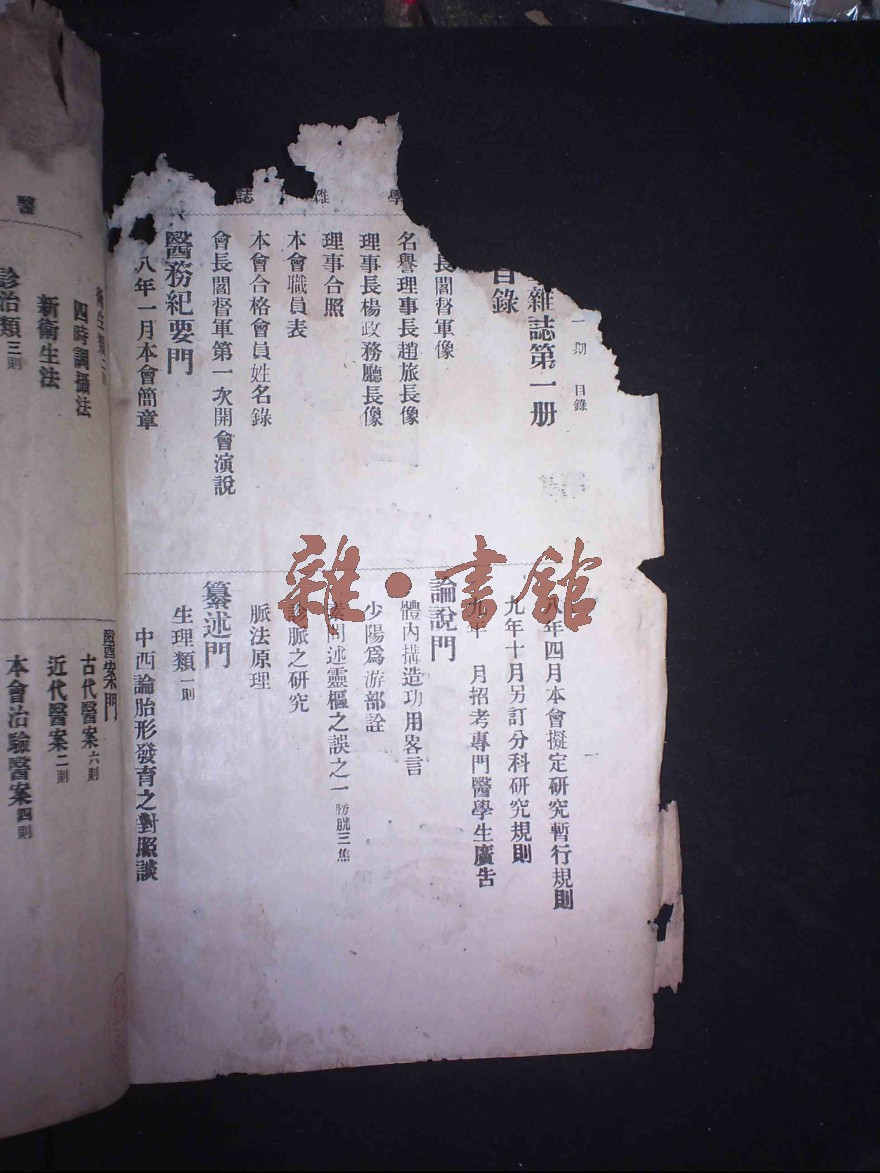 一期 目錄
雜誌第一册
目錄
長閻督軍像
名譽理事長趙旅長像
理事長楊政務廳長像
理事合照
本會職員表
本會合格會員姓名錄
會長閻督軍第一次開會演說
醫務紀要門
八年一月本會簡章
學雜誌
八年四月本會擬定研究暫行規則
九年十月另訂分科研究規則
九年 月招考專門醫學生廣告
論說門
體內搆造功用畧言
少陽爲游部詮
問述靈樞之誤之一 膀胱三焦
診脈之研究
脈法原理
纂述門
生理類一則
中西論胎形發育之對照談
醫
衛生類
四時調攝法
新衛生法
診治類三則
醫案門
古代醫案六則
近代醫案二則
本會治驗醫案四則
雜·書館